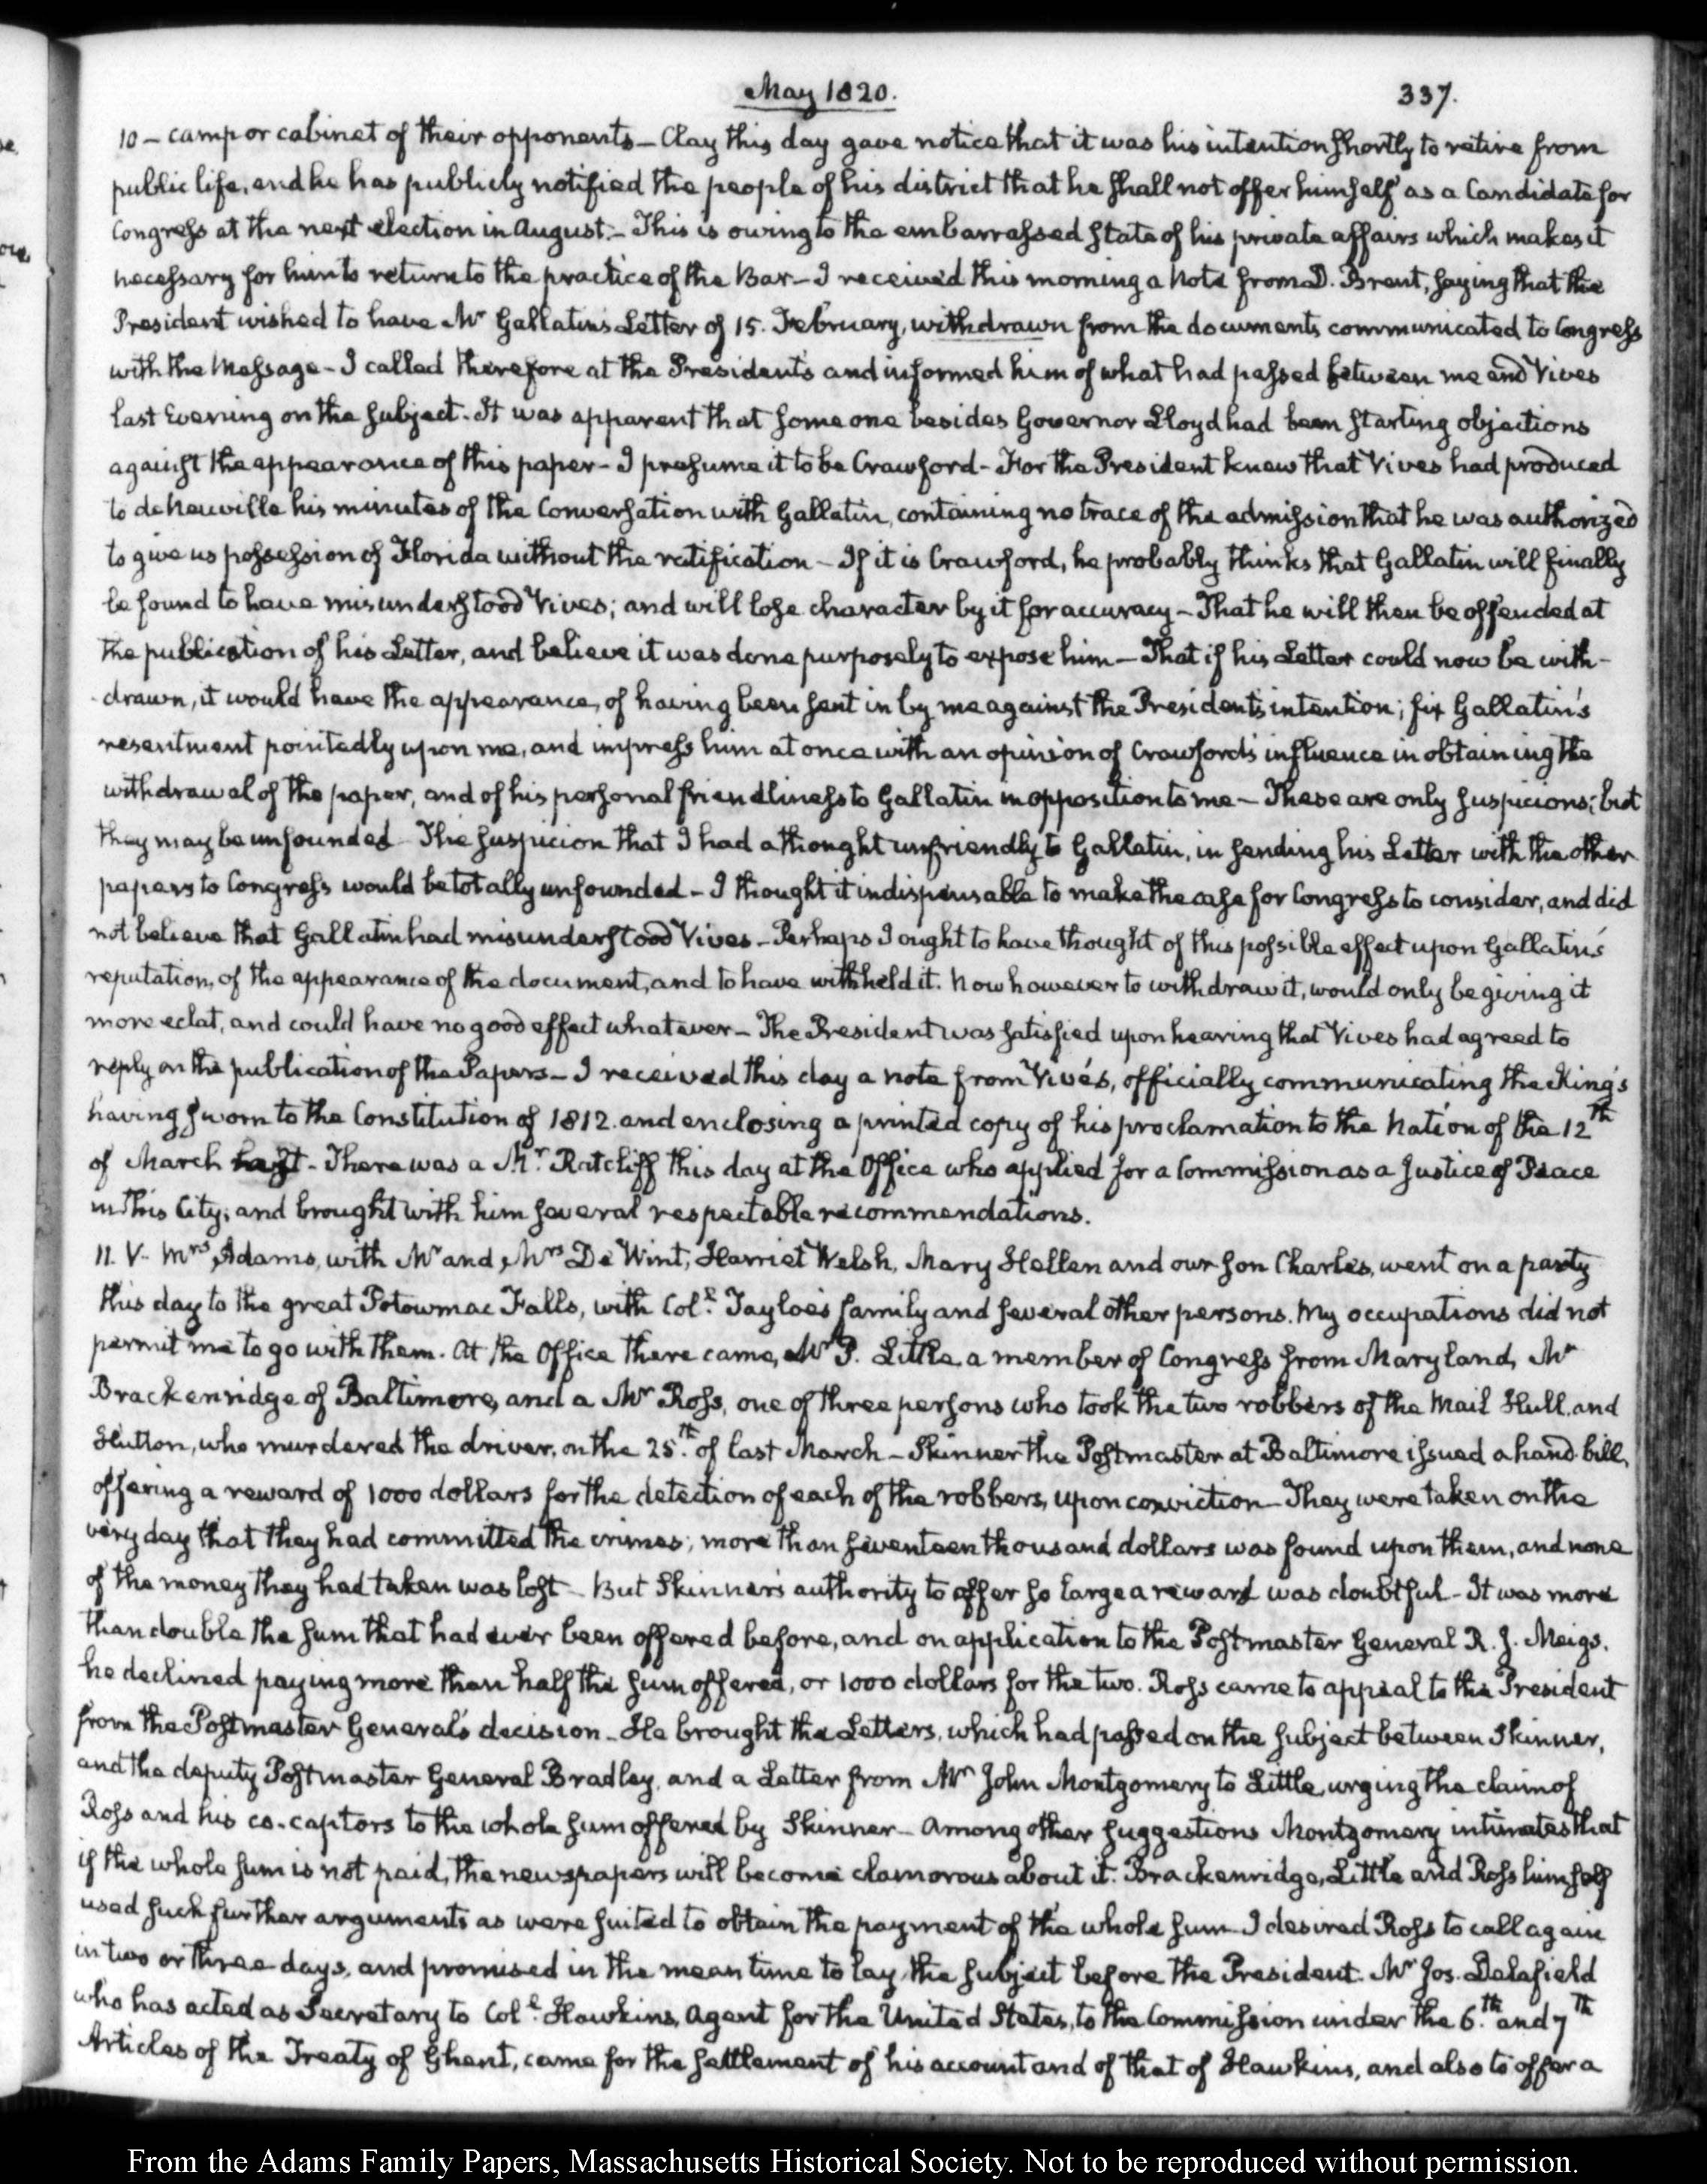 May 1820.
337.
10 - camp or cabinet of their opponents - Clay this day gave notice that it was his intention shortly to retire from
public life, and he has publicly notified the people of his district that he shall not offer himself as a Candidate for
Congress at the next election in August. - This is owing to the embarrassed state of his private affairs which makes it
necessary for him to return to the practice of the Bar - I received this morning a Note from D. Brent, saying that the
President wished to have Mr Gallatin's Letter of 15. February, withdrawn from the documents communicated to Congress
with the Message - I called therefore at the President's and informed him of what had passed between me and Vives
last Evening on the subject. It was apparent that some one besides Governor Lloyd had been starting objections
against the appearance of this paper - I presume it to be Crawford - For the President knew that Vives had produced
to de Neuville his minutes of the Conversation with Gallatin, containing no trace of the admission that he was authorized
to give us possession of Florida without the ratification - If it is Crawford, he probably thinks that Gallatin will finally
be found to have misunderstood Vives; and will lose character by it for accuracy - That he will then be offended at
the publication of his Letter, and believe it was done purposely to expose him - That if his Letter could now be with-
drawn, it would have the appearance, of having been sent in by me against the President's intention; fix Gallatin's
resentment pointedly upon me, and impress him at once with an opinion of Crawford's influence in obtaining the
withdrawal of the paper, and of his personal friendliness to Gallatin in opposition to me - These are only suspicions; but
they may be unfounded - The suspicion that I had a thought unfriendly to Gallatin, in sending his Letter with the other
papers to Congress would be totally unfounded - I thought it indispensable to make the case for Congress to consider, and did
not believe that Gallatin had misunderstood Vives - Perhaps I ought to have thought of this possible effect upon Gallatin's
reputation, of the appearance of the document, and to have withheld it. Now however to withdraw it, would only be giving it
more eclat, and could have no good effect whatever - The President was satisfied upon hearing that Vives had agreed to
reply on the publication of the Papers - I received this day a note from Vivés, officially communicating the King's
having sworn to the Constitution of 1812. and enclosing a printed copy of his proclamation to the Nation of the 12th
of March last - There was a Mr. Ratcliff this day at the Office who applied for a Commission as a Justice of Peace
in this City; and brought with him several respectable recommendations.
11. V. Mrs Adams, with Mr and Mrs De Wint, Harriet Welsh, Mary Hellen and our son Charles, went on a party
this day to the great Potowmac Falls, with Coll. Tayloe's family and several other persons. My occupations did not
permit me to go with them. At the Office there came, Mr P. Little, a member of Congress from Maryland, Mr
Brackenridge of Baltimore, and a Mr Ross, one of three persons who took the two robbers of the Mail Hull, and
Hutton, who murdered the driver, on the 25th. of last March - Skinner the Postmaster at Baltimore issued a hand-bill,
offering a reward of 1000 dollars for the detection of each of the robbers, upon conviction - They were taken on the
very day that they had committed the crimes; more than seventeen thousand dollars was found upon them, and none
of the money they had taken was lost - But Skinner's authority to offer so large a reward was doubtful - It was more
than double the sum that had ever been offered before, and on application to the Postmaster General R. J. Meigs.
he declined paying more than half the sum offered, or 1000 dollars for the two. Ross came to appeal to the President
from the Postmaster General's decision - He brought the Letters, which had passed on the subject between Skinner,
and the deputy Postmaster General Bradley, and a Letter from Mr John Montgomery to Little, urging the claim of
Ross and his co-captors to the whole sum offered by Skinner - Among other suggestions Montgomery intimates that
if the whole sum is not paid, the newspapers will become clamorous about it. Brackenridge, Little and Ross himself
used such further arguments as were suited to obtain the payment of the whole sum - I desired Ross to call again
in two or three days, and promised in the mean time to lay the subject before the President. Mr Jos. Delafield
who has acted as Secretary to Coll. Hawkins, Agent for the United States, to the Commission under the 6th. and 7th
Articles of the Treaty of Ghent, came for the settlement of his account and of that of Hawkins, and also to offer a
From the Adams Family Papers, Massachusetts Historical Society. Not to be reproduced without permission.